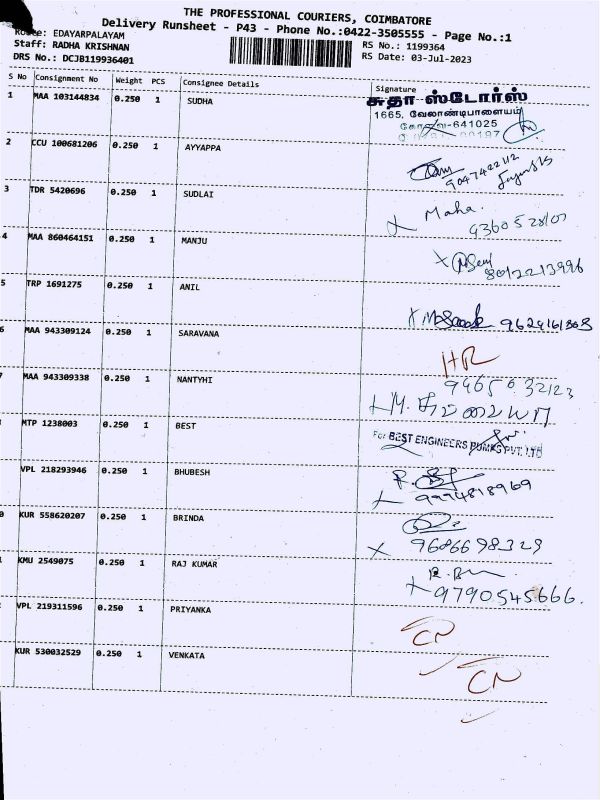 THE PROFESSIONAL COURIERS, COIMBATORE
Delivery Runsheet - P43 - Phone No.:0422-3505555 - Page No.:1
Route: EDAYARPALAYAM
Staff: RADHA KRISHNAN
RS No.: 1199364
DRS No.: DCJB119936401
RS Date: 03-Jul-2023
S No Consignment No Weight PCS Consignee Details Signature
1 MAA 103144834 0.250 1 SUDHA
சுதா ஸ்டோர்ஸ்
1665, வேலாண்டிபாளையம்
கோவை-641025
2 CCU 100681206 0.250 1 AYYAPPA
9047422112
3 TDR 5420696 0.250 1 SUDLAI
Maha
4 MAA 860464151 0.250 1 MANJU
8012213996
5 TRP 1691275 0.250 1 ANIL
6 MAA 943309124 0.250 1 SARAVANA
HR
7 MAA 943309338 0.250 1 NANTYHI
9465632123
MTP 1238003 0.250 1 BEST
For BEST ENGINEERS PUMPS PVT. LTD
VPL 218293946 0.250 1 BHUBESH
9974818969
0 KUR 558620207 0.250 1 BRINDA
9686698329
KMU 2549075 0.250 1 RAJ KUMAR
9790545666.
VPL 219311596 0.250 1 PRIYANKA
CN
KUR 530032529 0.250 1 VENKATA
CN